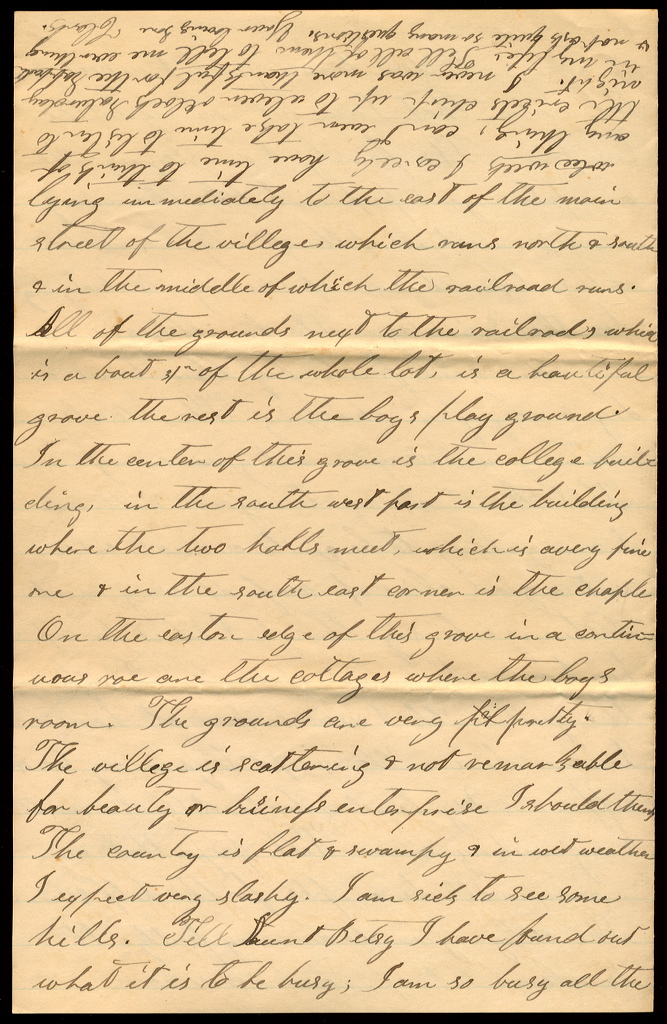 lying immediately to the east of the main
street of the villege, which runs north & south
& in the middle of which the railroad runs.
All of the grounds next to the railroad, which
is a bout of the whole lot, is a beautiful
grove the rest is the boys play ground.
In the center of this grove is the college buil=
ding, in the south west part is the building
where the two halls meet, which is a very fine
one & in the south east corner is the chaple
On the easton edge of this grove in a contin=
uous roe are the cottages where the boys
room. The grounds are very pretty.
The villege is scattering & not remarkable
for beauty or buisness enterprise I should think
The country is flat & swampy & in wet weather
I expect very slashy. I am sick to see some
hills. Tell Aunt Betsy I have found out
what it is to be busy; I am so busy all the
week I carcely have time to think of
any thing, cant even take time to listen to
the crickets chirp up to eleven oclock Saturday
night. I never was more thankful for the Sabbath
in my life. Tell all of them to tell me everything
& not ask quite so many questions. Your loving son Clark.